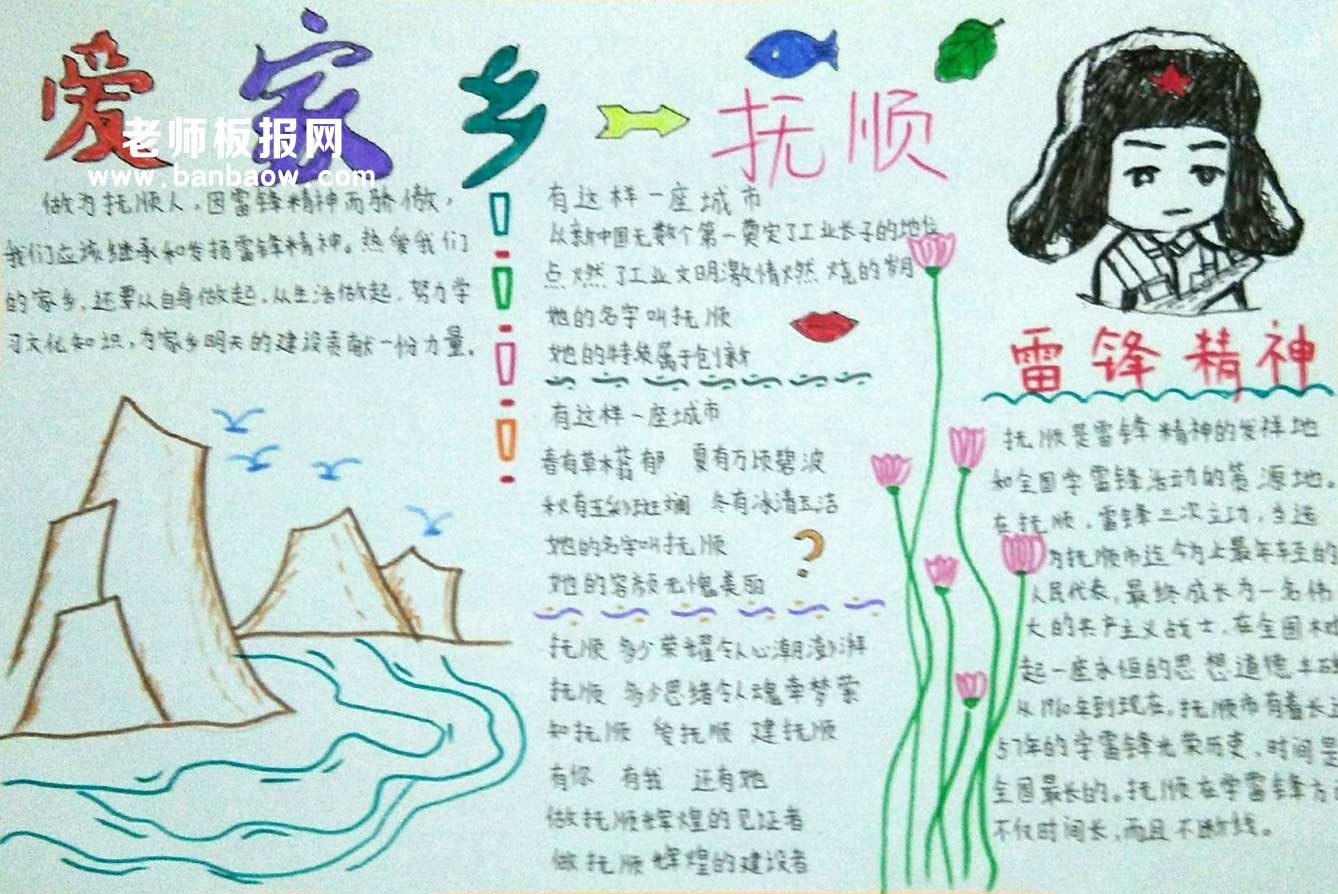 爱家乡
抚顺
老师板报网
www.banbaow.com
做为抚顺人，因雷锋精神而骄傲，
我们应该继承和发扬雷锋精神。热爱我们
的家乡，还要从自身做起，从生活做起，努力学
习文化知识，为家乡明天的建设贡献一份力量。
有这样一座城市
从新中国无数个第一奠定了工业长子的地位
点燃了工业文明激情燃烧的岁月
她的名字叫抚顺
她的特质属于创新
有这样一座城市
春有草木蓊郁 夏有万顷碧波
秋有五彩斑斓 冬有冰清玉洁
她的名字叫抚顺
她的容颜无愧美丽
抚顺 多少荣耀令人心潮澎湃
抚顺 多少思绪令人魂牵梦萦
知抚顺 爱抚顺 建抚顺
有你 有我 还有她
做抚顺辉煌的见证者
做抚顺辉煌的建设者
雷锋精神
抚顺是雷锋精神的发祥地
和全国学雷锋活动的策源地。
在抚顺，雷锋三次立功，当选
为抚顺市迄今为止最年轻的
人民代表，最终成长为一名伟
大的共产主义战士，在全国树
起一座永恒的思想道德丰碑
从1960年到现在，抚顺市有着长达
57年的学雷锋光荣历史，时间是
全国最长的。抚顺在学雷锋方
不仅时间长，而且不断线。